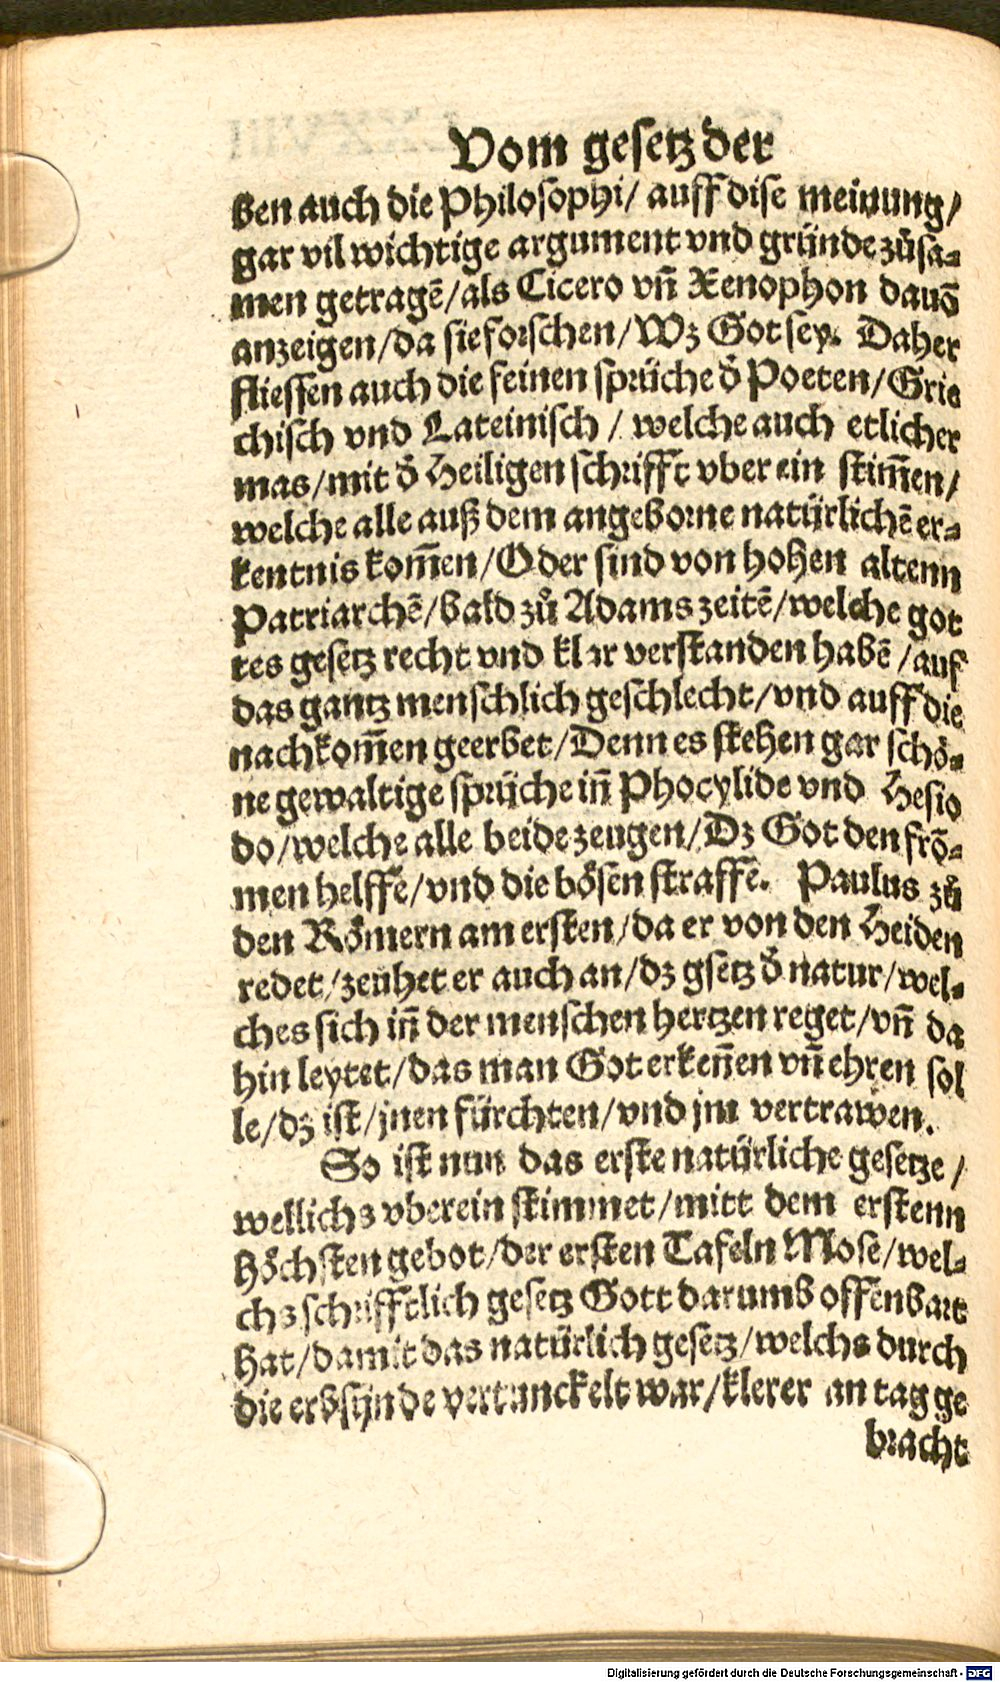 Vom gesetz der
ben auch die Philosophi/ auff dise meinung/
gar vil wichtige argument vnd gründe zůsa-
men getragē/als Cicero vn̄ Xenophon dauō
anzeigen/da sie forschen/Wz Got sey. Daher
fliessen auch die feinen sprüche d̄ Poeten/Grie
chisch vnd Lateinisch / welche auch etlicher
mas/mit d̄ Heiligen schrifft vber ein stim̄en/
welche alle auß dem angeborne natürlichē er-
kentnis kom̄en/Oder sind von hohen altenn
Patriarchē/bald zů Adams zeitē/welche got
tes gesetz recht vnd klar verstanden habē /auf
das gantz menschlich geschlecht/vnd auff die
nachkom̄en geerbet/Denn es stehen gar schö-
ne gewaltige sprüche in̄ Phocylide vnd Hesio
do/welche alle beide zeugen/Dz Got den frō-
men helffe/vnd die bösen straffe. Paulus zů
den Römern am ersten/da er von den Heiden
redet/zeuhet er auch an/dz gsetz d̄ natur/wel-
ches sich in̄ der menschen hertzen reget/vn̄ da
hin leytet/das man Got erken̄en vn̄ ehren sol
le/dz ist/jnen fürchten/vnd jm vertrawen.
So ist nun das erste natürliche gesetze /
wellichs vberein stimmet/mitt dem erstenn
höchsten gebot/der ersten Tafeln Mose/wel-
chs schrifftlich gesetz Gott darumb offenbart
hat/damit das natürlich gesetz/welchs durch
die erbsünde vertunckelt war/klerer an tag ge
bracht
Digitalisierung gefördert durch die Deutsche Forschungsgemeinschaft - DFG